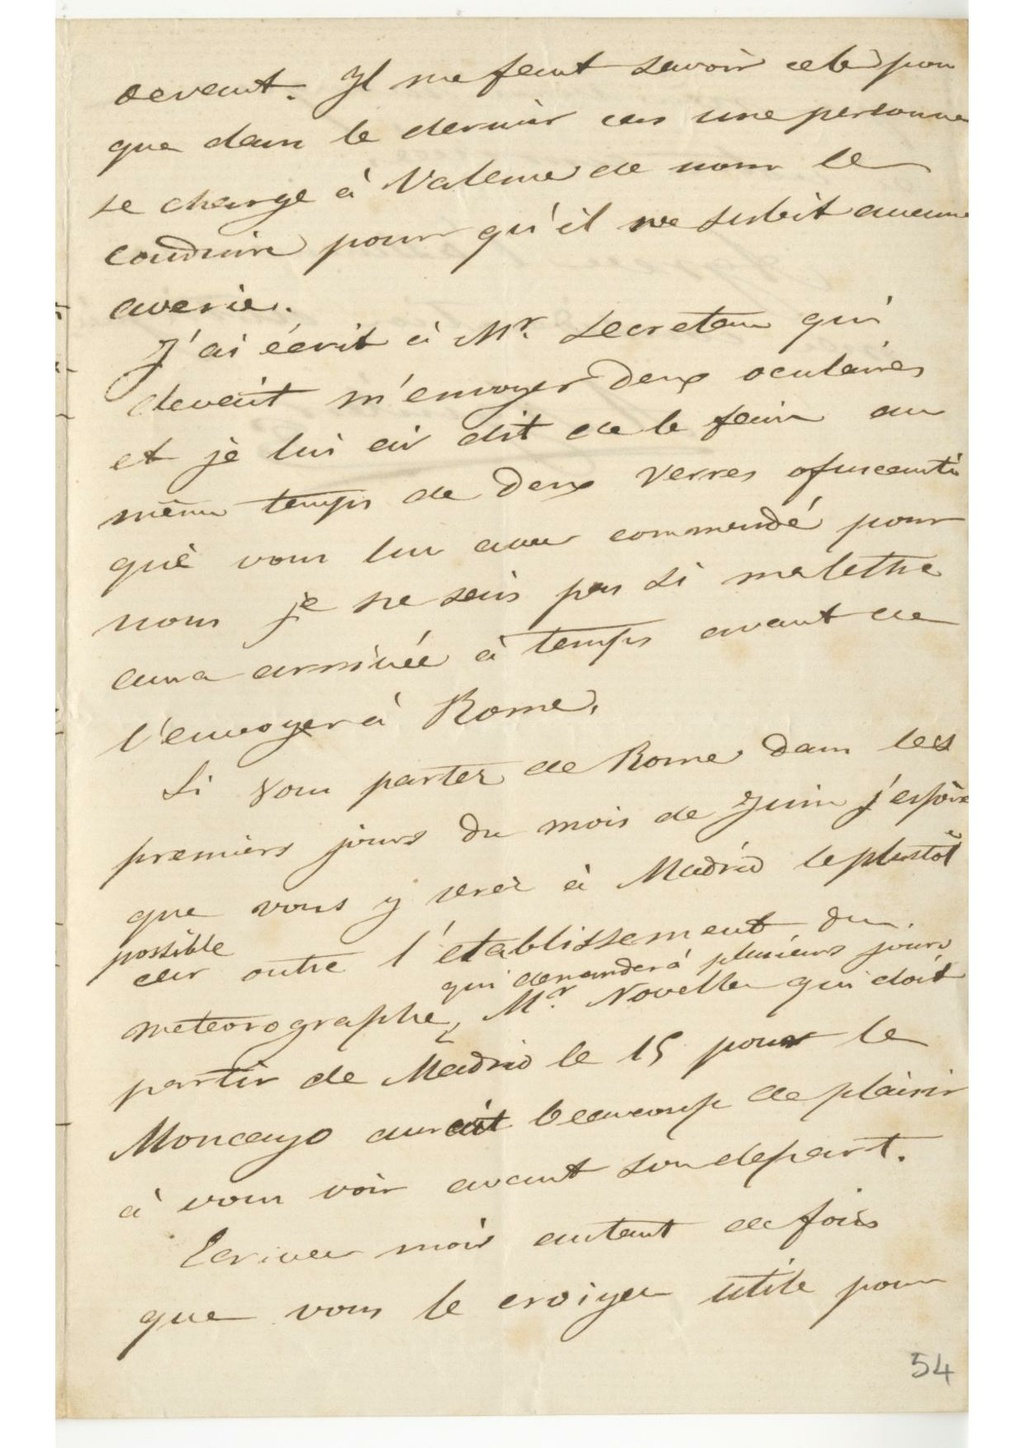 devant. Il me faut savoir cela pour
que dans le dernier cas une personne
se charge à Valence de nous le
conduire pour qu'il ne subit aucune
averie.
J'ai écrit à Mr. Secretan qui
devait m'envoyer deux oculaires
et je lui ai dit de le faire au
même temps de deux verres ofuscants
que vous lui avez commandé pour
nous je ne sais pas si ma lettre
aura arrivée à temps avant de
l'envoyer à Rome.
Si vous partez de Rome dans les
premiers jours du mois de Juin j'espère
que vous y serez à Madrid le plustôt
possible
car outre l'etablissement du
qui demandera plusieurs jours
meteorographe, Mr. Novella qui doit
partir de Madrid le 15 pour le
Moncayo aurait beaucoup de plaisir
à vous voir avant son depart.
Ecrivez moi autant de fois
que vous le croiyez utile pour
54